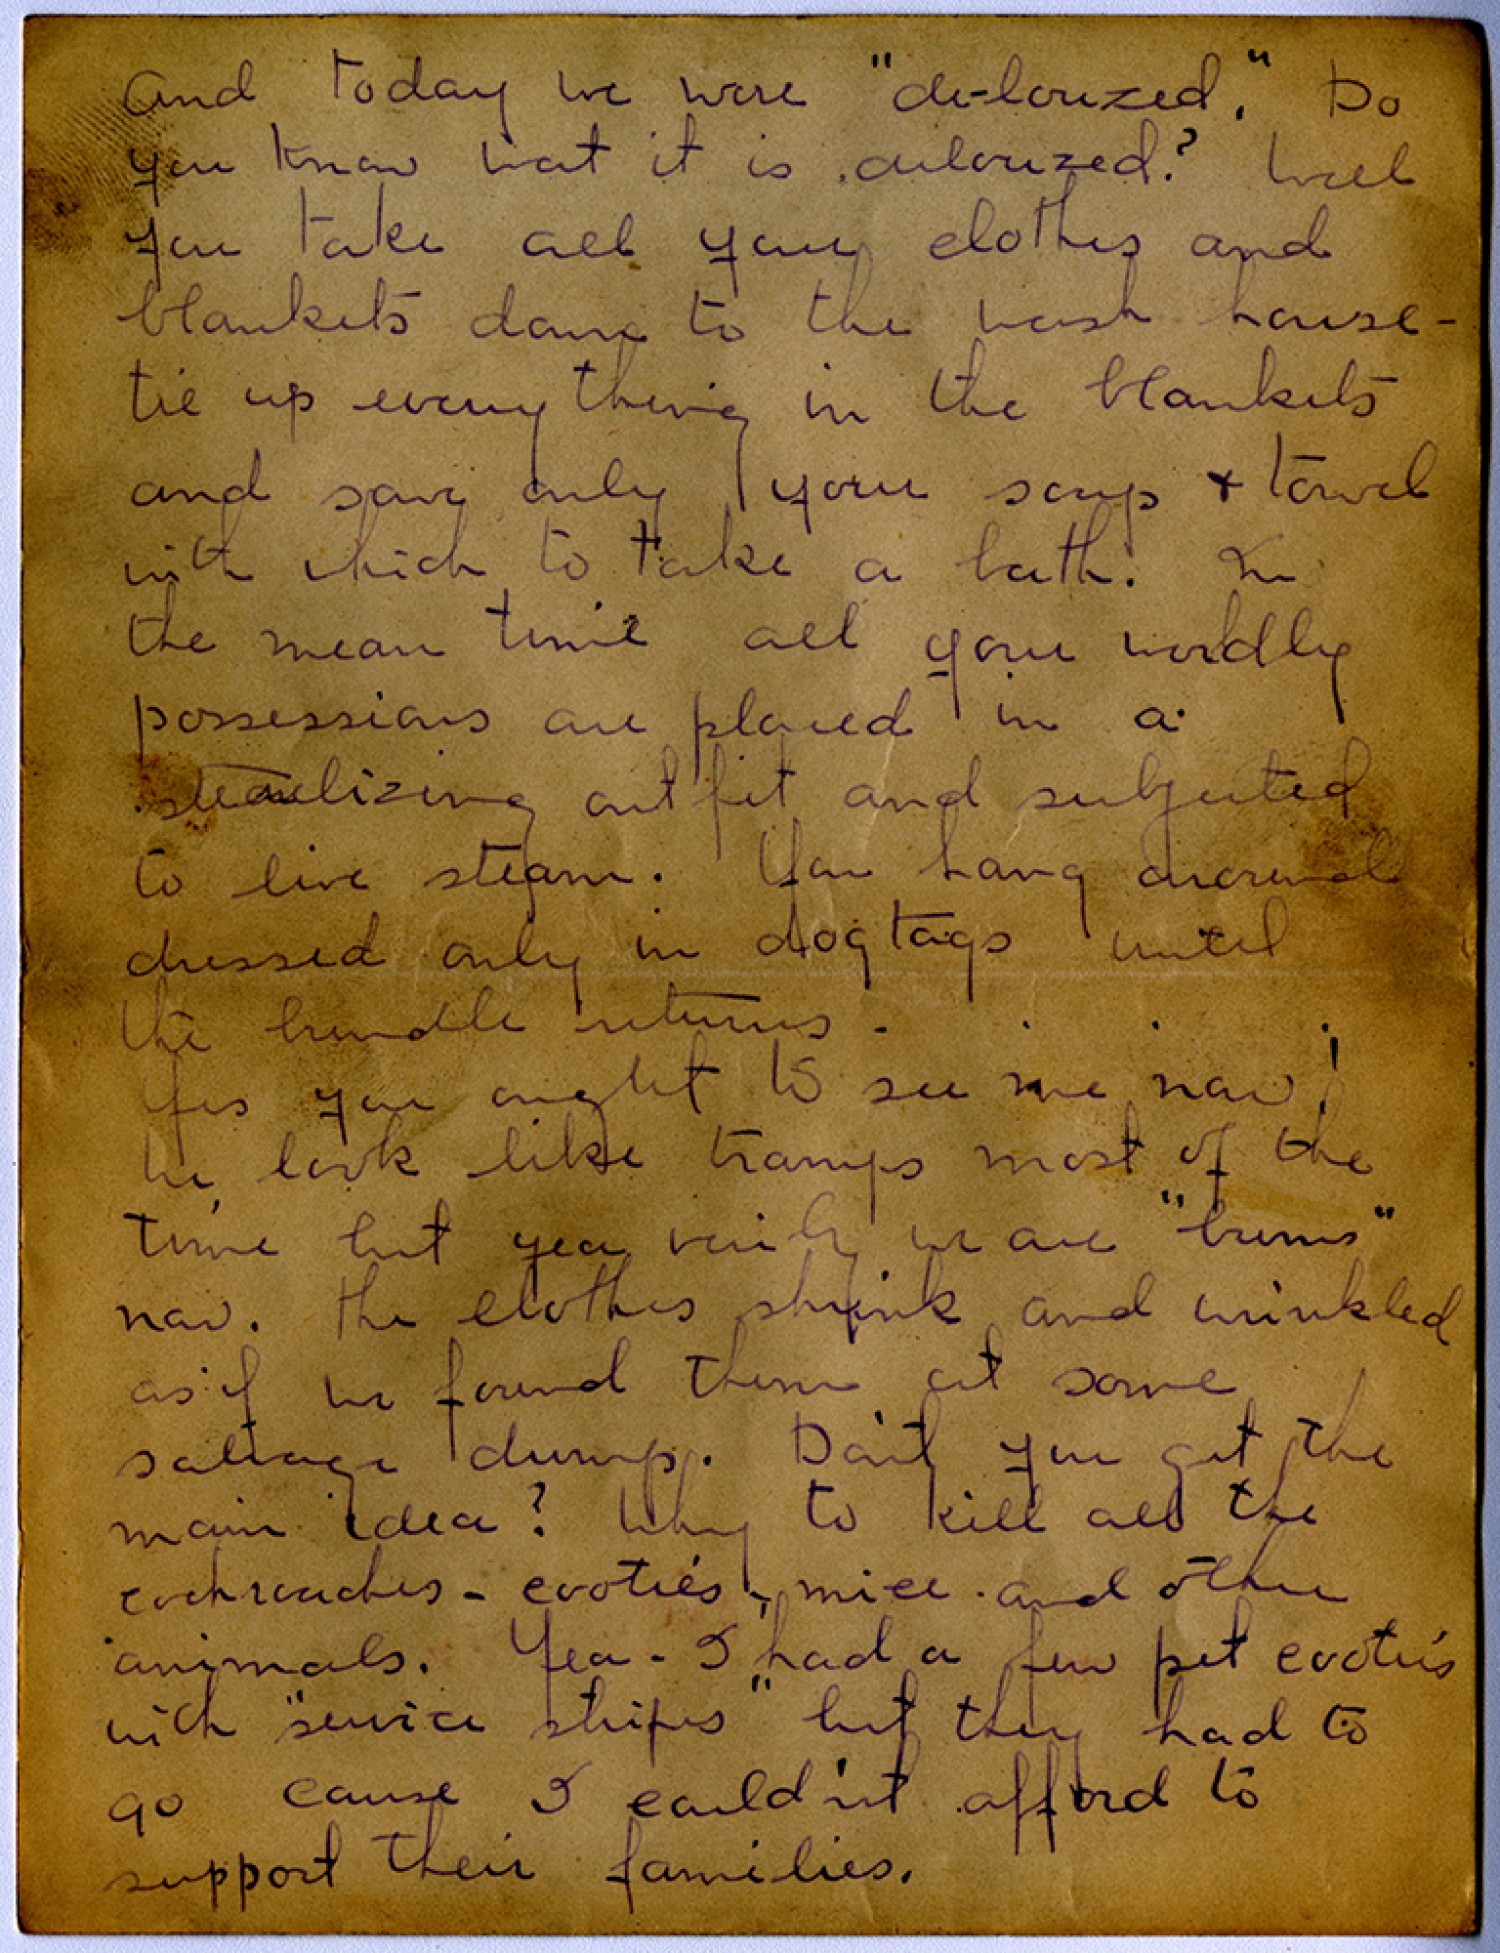 And today we were "de-lourized." Do
you know wat it is delourized? Well
you take all your clothes and
blankets down to the wash house -
tie up everything in the blankets
and save only your soap + towel
with which to take a bath. In
the mean time all your wordly
possessions are placed in a
sterelizing outfit and subjected
to live steam. You hang around
dressed only in dog tags until
the bundle returns - . . .
Yes you ought to see me now!
We look like tramps most of the
time but yea verily we are "bums"
now. The clothes shrink and wrinkled
as if we found them at some
salvage dump. Don't you get the
main idea? Why to kill all the
cockroaches - cooties, mice and other
animals. Yea - I had a few pet cooties
with "service stripes" but they had to
go cause I could'nt afford to
support their families.